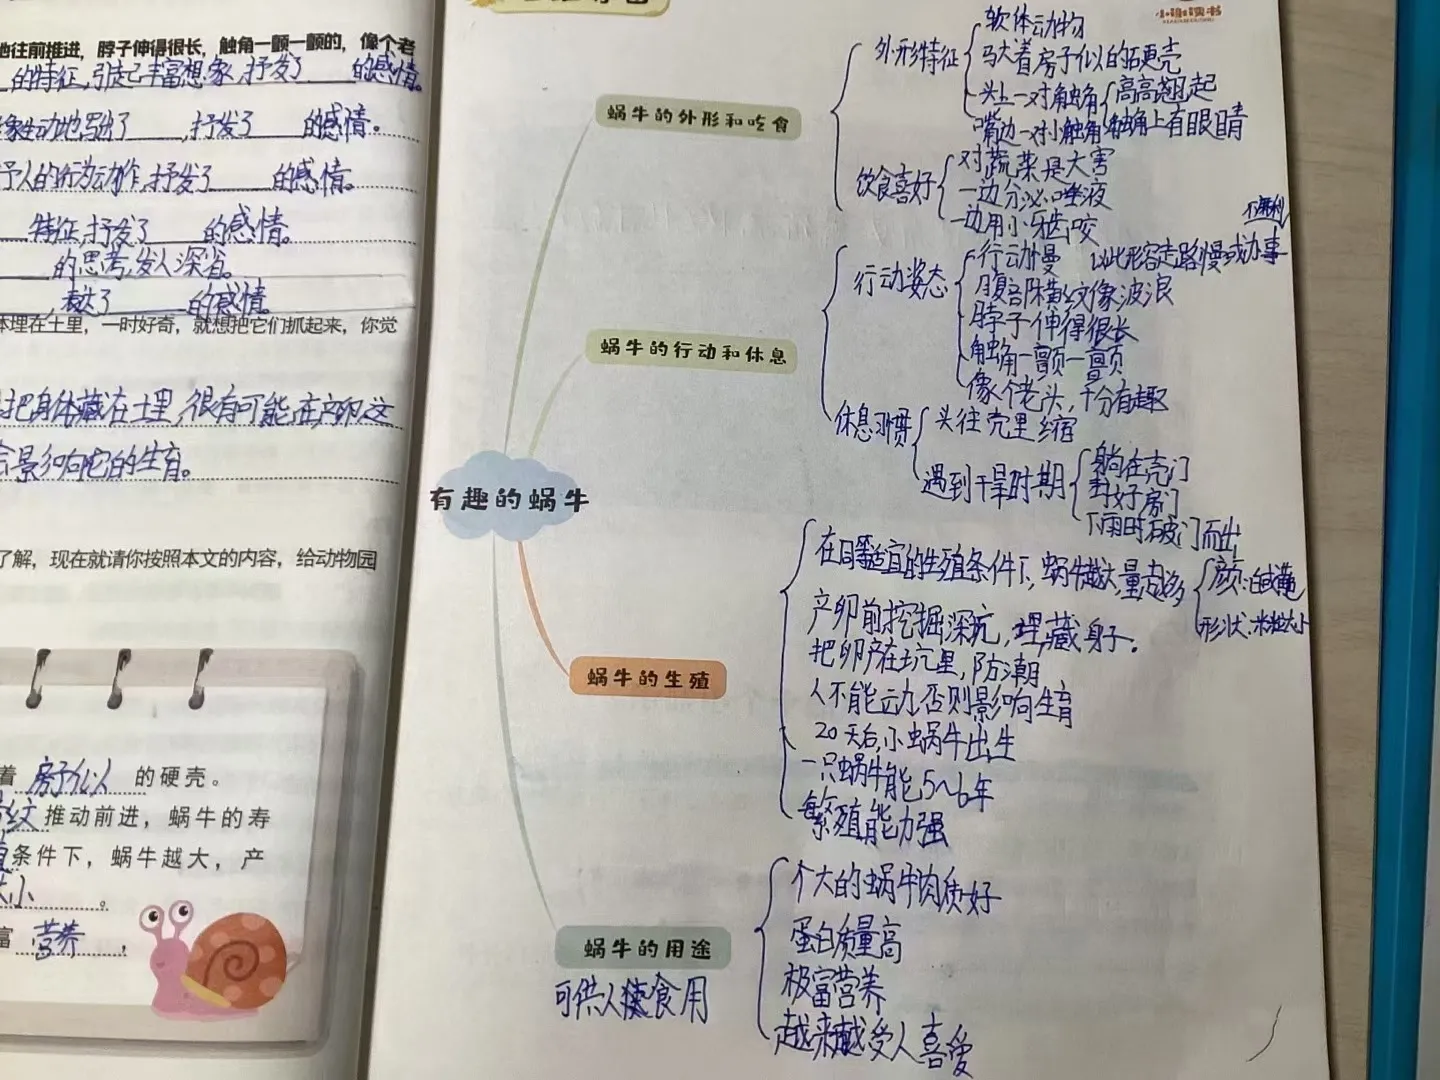 地往前推进，脖子伸得很长，触角一颤一颤的，像个老
的特征,引起了丰富想象,抒发了____的感情。
象生动地写出了____,抒发了____的感情。
予人的行为动作,抒发了____的感情。
____特征,抒发了____的感情。
____的思考,发人深省。
____,表达了____的感情。
体埋在土里，一时好奇，就想把它们抓起来，你觉
把身体藏在土里,很有可能在产卵,这
会影响它的生育。
了解，现在就请你按照本文的内容，给动物园
着 房子似 的硬壳。
纹 推动前进，蜗牛的寿
条件下，蜗牛越大，产
大小 。
富 营养 ，
小谢读书
有趣的蜗牛
蜗牛的外形和吃食
外形特征
软体动物
马大着房子似的石更壳
头上一对角触角
高高翘起
触角上有眼睛
嘴边一对小触角
饮食喜好
对蔬菜是大害
一边分泌唾液
一边用小牙齿咬
蜗牛的行动和休息
行动姿态
行动慢 以此形容走路慢或办事
不麻利
腹部横纹像波浪
脖子伸得很长
触角一颤一颤
像个老头,十分有趣
休息习惯
头往壳里缩
遇到干旱时期
躺在壳门
封好房门
下雨时破门而出
蜗牛的生殖
在同等适宜的生殖条件下,蜗牛越大,量越多
形状:米粒大小
产卵前挖掘深坑,埋藏身子.
把卵产在坑里,防潮
人不能动,否则影响生育
20天后,小蜗牛出生
一只蜗牛能5~6年
繁殖能力强
蜗牛的用途
可供人类食用
个大的蜗牛肉质好
蛋白质量高
极富营养
越来越受人喜爱